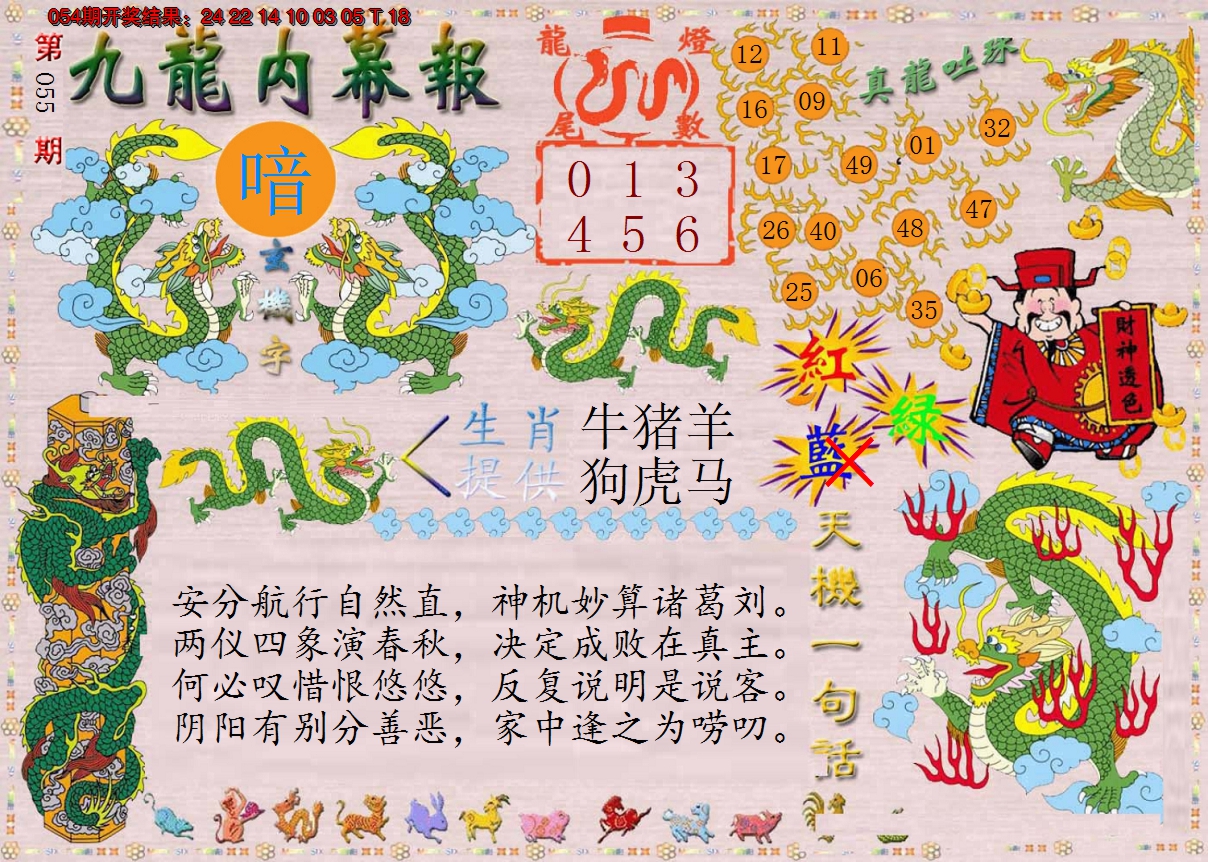 054期开奖结果：24 22 14 10 03 05 T 18
第055期
九龍内幕報
喑
玄機字
龍燈
尾數
0 1 3
4 5 6
真龍吐珠
12
11
16
09
01
32
17
49
47
26
40
48
06
25
35
財神透色
紅
綠
藍
生肖 牛猪羊
提供 狗虎马
安分航行自然直，神机妙算诸葛刘。
两仪四象演春秋，决定成败在真主。
何必叹惜恨悠悠，反复说明是说客。
阴阳有别分善恶，家中逢之为唠叨。
天機一句話